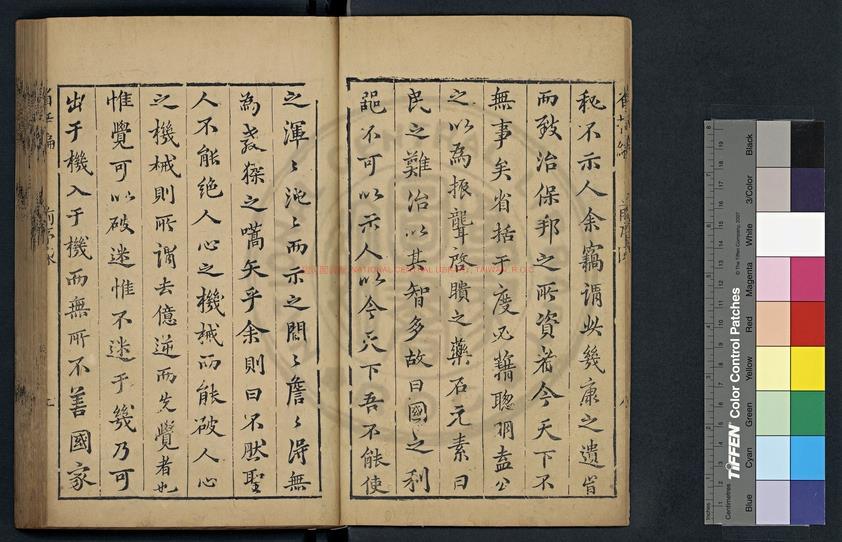 秘不示人余竊謂此幾康之遺旨
而致治保邦之所資者今天下不
無事矣省括于度必藉聰明盍公
之以為振聾啓瞶之藥石元素曰
民之難治以其智多故曰國之利
器不可以示人以今天下吾不能使
之渾渾沌沌而示之間間詹詹得無
為教猱之嚆矢乎余則曰不然聖
人不能絕人心之機械而能破人心
之機械則所謂去億逆而先覺者也
惟覺可以破迷惟不迷于幾乃可
出于機入于機而無所不善國家
NATIONAL CENTRAL LIBRARY, TAIWAN, R.O.C.
TIFFEN Color Control Patches
© The Tiffen Company, 2007
Centimetres
Inches
Blue
Cyan
Green
Yellow
Red
Magenta
White
3/Color
Black